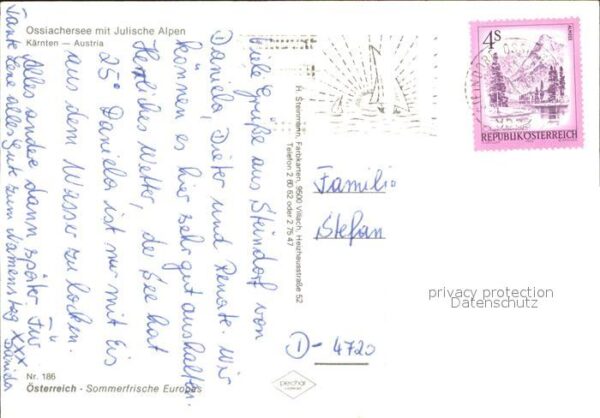 Ossiachersee mit Julische Alpen
Kärnten — Austria
Viele Grüße aus Steindorf von
Daniela, Dieter und Renate. Wir
können es hier sehr gut aushalten.
Herrliches Wetter, der See hat
25° Daniela ist nur mit Eis
aus dem Wasser zu locken.
Alles andre dann später. Für
Tante Lene alles Gute zum Namenstag XXX
Daniela
Nr. 186
Österreich - Sommerfrische Europas
H. Steinmann, Farbkarten, 9500 Villach, Heizhausstraße 52
Telefon 2 60 62 oder 2 75 47
4S
REPUBLIK ÖSTERREICH
Familie
Stefan
D - 4720
privacy protection
Datenschutz